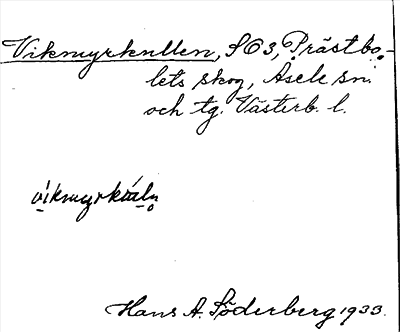 Vikmyrkullen, SO3, Prästbo-
lets skog, Åsele sn.
och tg. Västerb. l.
Hans A. Söderberg 1933.